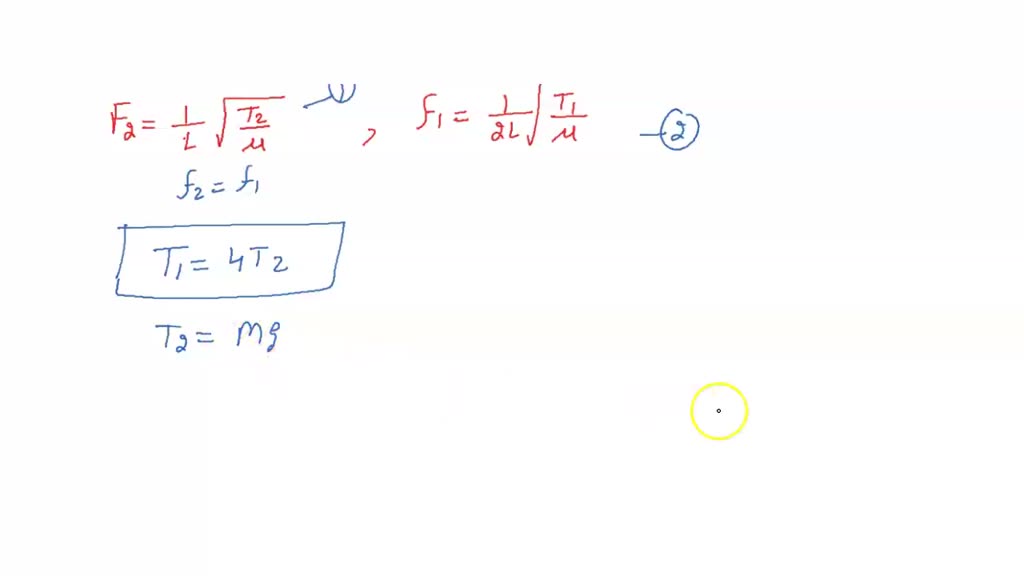 F₂ = 1/L √(T₂/μ) —(1) , f₁ = 1/2L √(T₁/μ) —(2)
f₂ = f₁
T₁ = 4T₂
T₂ = Mg